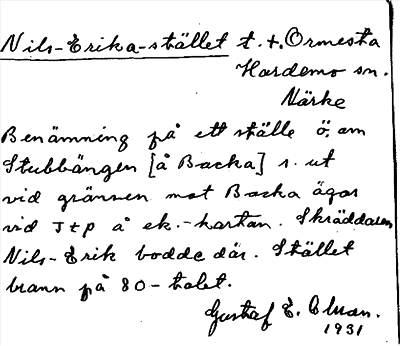 Nils-Erika-stället t. t. Ormesta
Hardemo sn.
Närke
Benämning på ett ställe ö. om
Stubbängen [å Backa] s. ut
vid gränsen mot Backa ägor
vid Jtp å ek.-kartan. Skräddaren
Nils-Erik bodde där. Stället
brann på 80-talet.
Gustaf E.
1931